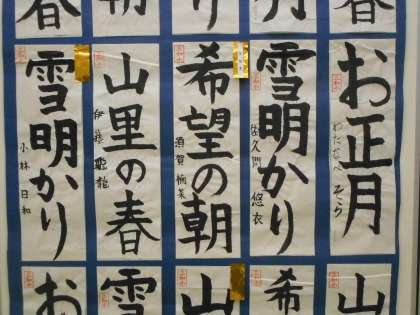 春
月
り
朝
春
お正月
わたなべ そら
雪明かり
佐久間 悠衣
希望の朝
須賀
山里の春
伊藤
雪明かり
小林 日和
山
希
山
雪
お